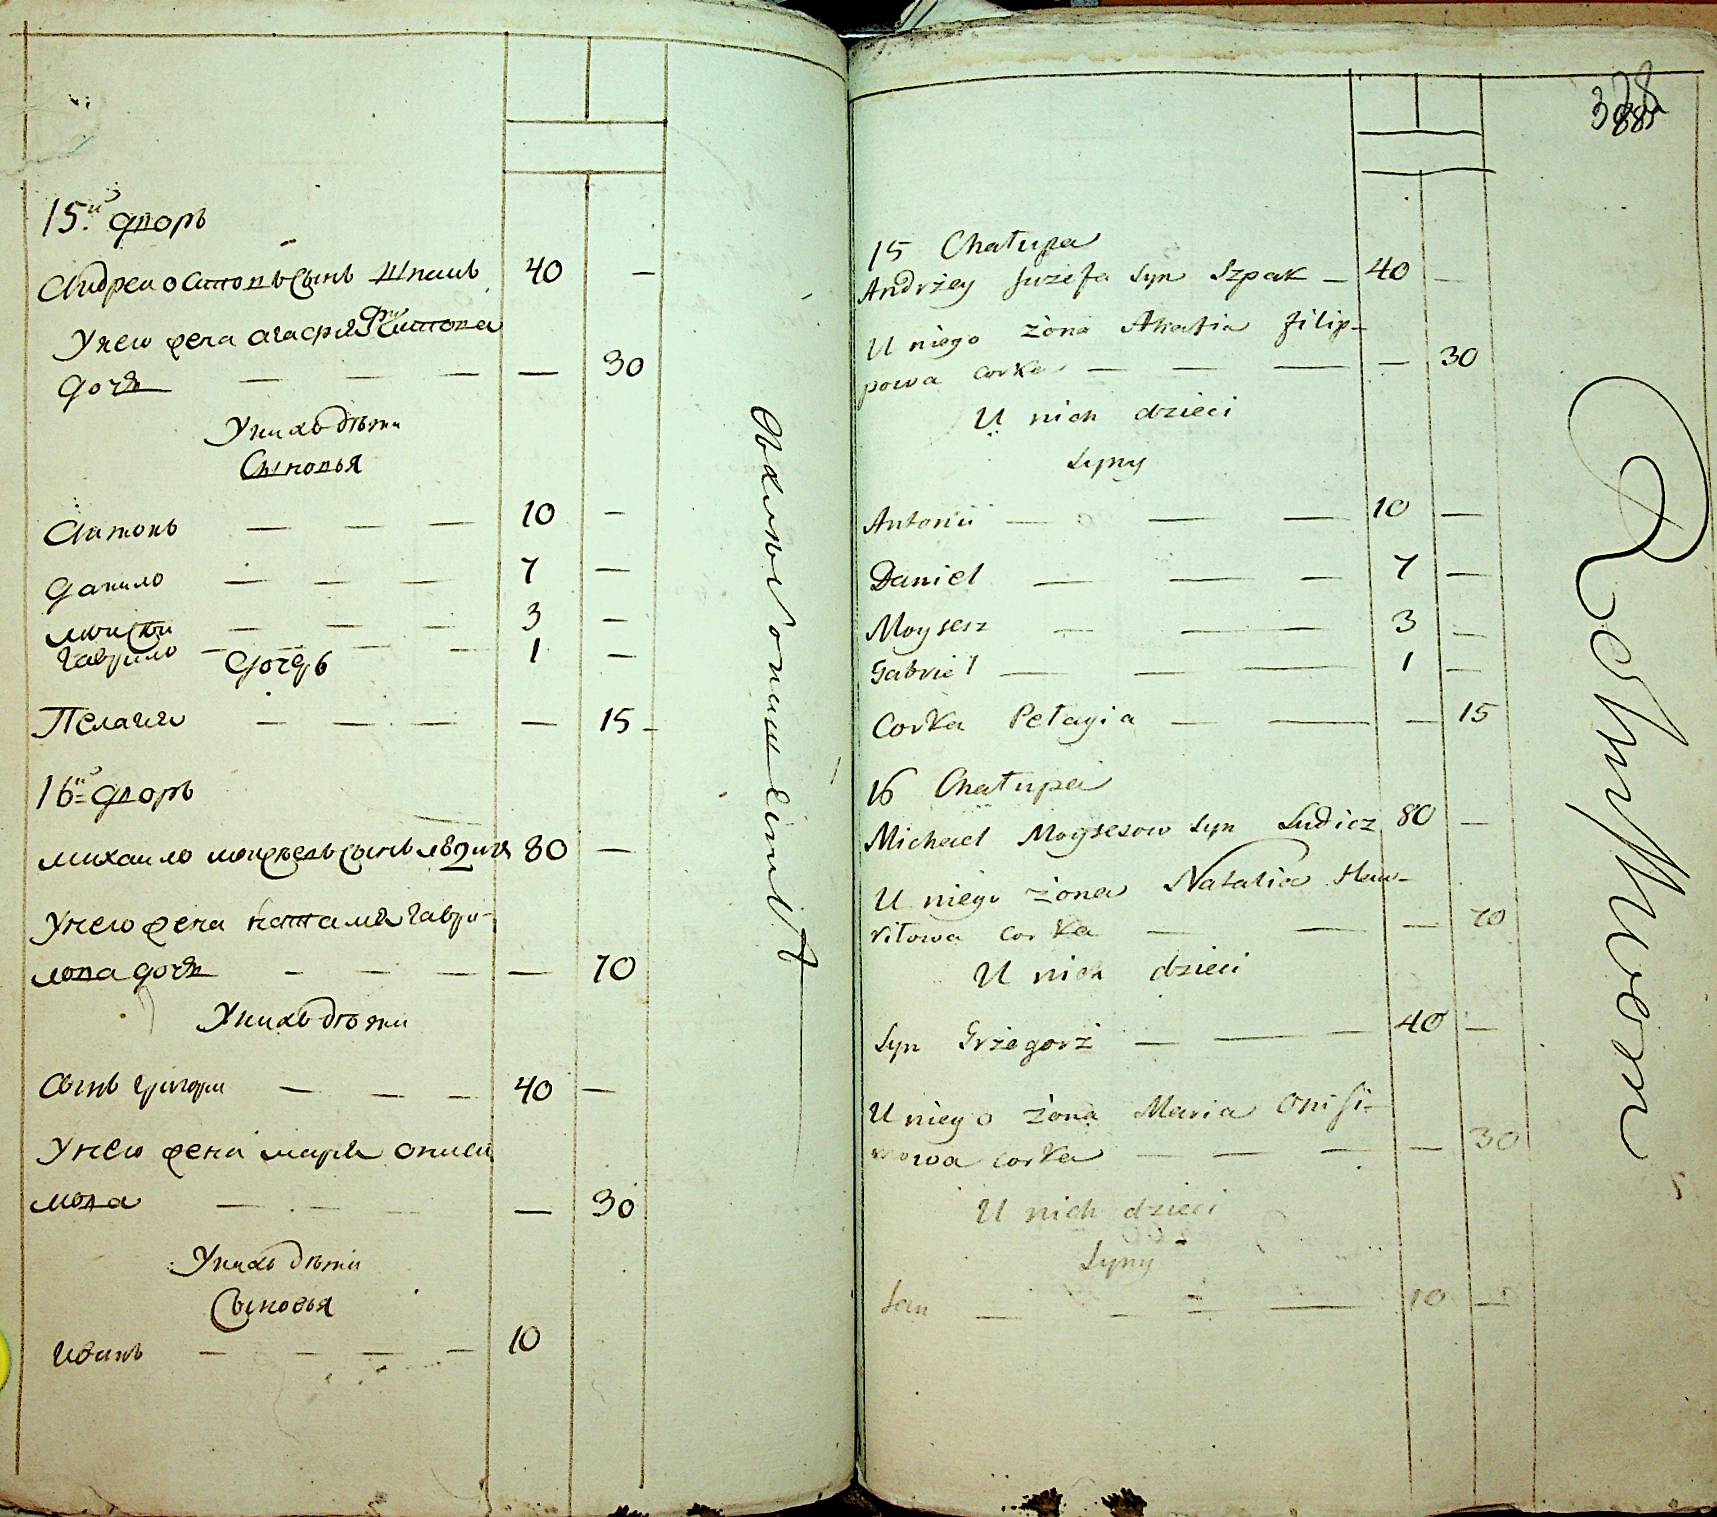 15й дворъ
Андреи Осиповъ сынъ Шпакъ 40 —
Унего жена агафия Филипова
дочь — — — — 30
Унихъ дѣти
Сыновья
Антонъ — — — 10 —
Данило — — — 7 —
моисеи — — — 3 —
гаврило — — — 1 —
дочерь
Пелагия — — — — 15 —
16й дворъ
михаило моисеевъ сынъ 80 —
Унего жена наталия гаври-
лова дочь — — — — 70
Унихъ дѣти
Сынъ григори — — — 40 —
Унего жена мария ониси
мова — — — — 30
Унихъ дѣти
Сыновья
иванъ — — — — 10
388
15 Chałupa
Andrżey Juzefa Syn Szpak — 40 —
U niego żona Ahafia filip-
powa corka — — — — 30
U nich dzieci
Syny
Antonii — — — 10 —
Daniel — — — 7 —
Moysesz — — — 3 —
Gabriel — — — 1 —
Corka Pelagia — — — 15
16 Chałupa
Michael Moysesow Syn 80 —
U niego żona Natalia Haw-
ryłowa corka — — — 70
U nich dzieci
Syn Grżegorż — — — 40 —
U niego żona Maria Onisi-
mowa corka — — — — 30
U nich dzieci
Syny
Jan — — — — 10 —